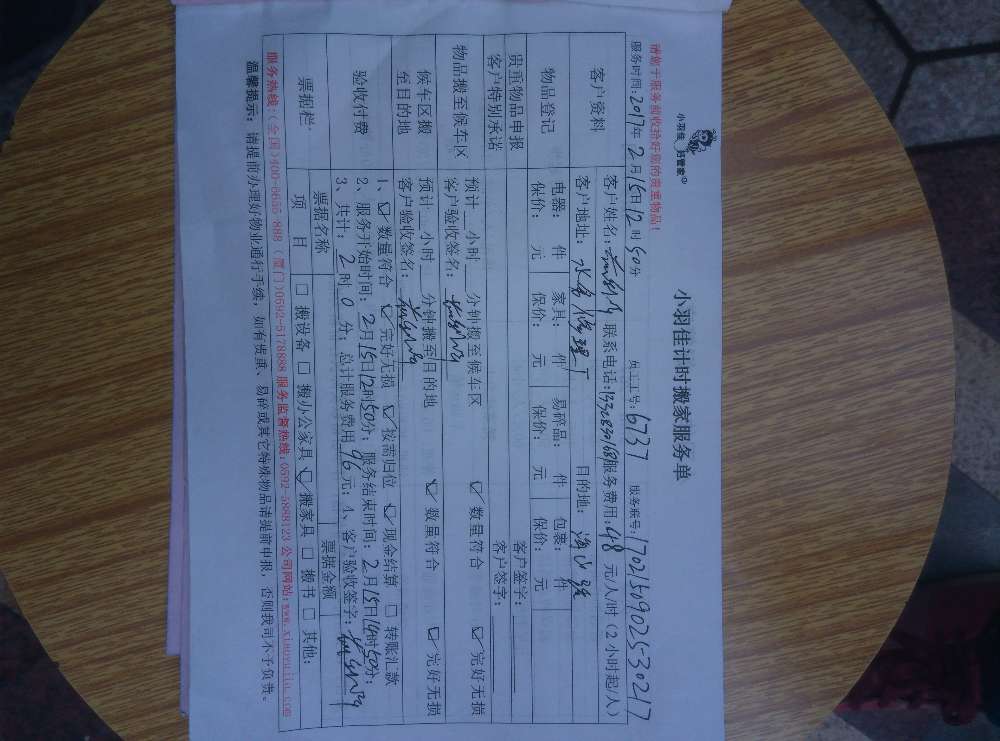 小羽佳 好管家
小羽佳计时搬家服务单
请您于服务前收拾好您的贵重物品!
服务时间:2017年2月15日12时50分 员工工号:6737 服务账号:1702150902530217
客户资料
客户姓名: 联系电话: 服务费用:48元/人/时(2小时起/人)
客户地址: 修理厂 目的地:
物品登记
电器: 件 家具: 件 易碎品: 件 包裹: 件
保价: 元 保价: 元 保价: 元 保价: 元
贵重物品申报 客户签字:
客户特别承诺 客户签字:
物品搬至候车区
预计 小时 分钟搬至候车区 ☑数量符合 ☑完好无损
客户验收签名:
候车区搬
至目的地
预计 小时 分钟搬至目的地 ☑数量符合 ☑完好无损
客户验收签名:
验收付费
1、☑数量符合 ☑完好无损 ☑按需归位 ☑现金结算 □转账汇款
2、服务开始时间:2月15日12时50分;服务结束时间:2月15日14时50分;
3、共计:2时0分;总计服务费用96元;4、客户验收签字:
票据栏
票据名称 票据金额
项目 □搬设备 □搬办公家具 ☑搬家具 □搬书 □其他:
服务热线:(全国)400-6655-888 (厦门)0592-5178888 服务监督热线:0592-5888123 公司网站:www.xiaoyujia.com
温馨提示: 请提前办理好物业通行手续,如有贵重、易碎或其它特殊物品请提前申报,否则我司不予负责。